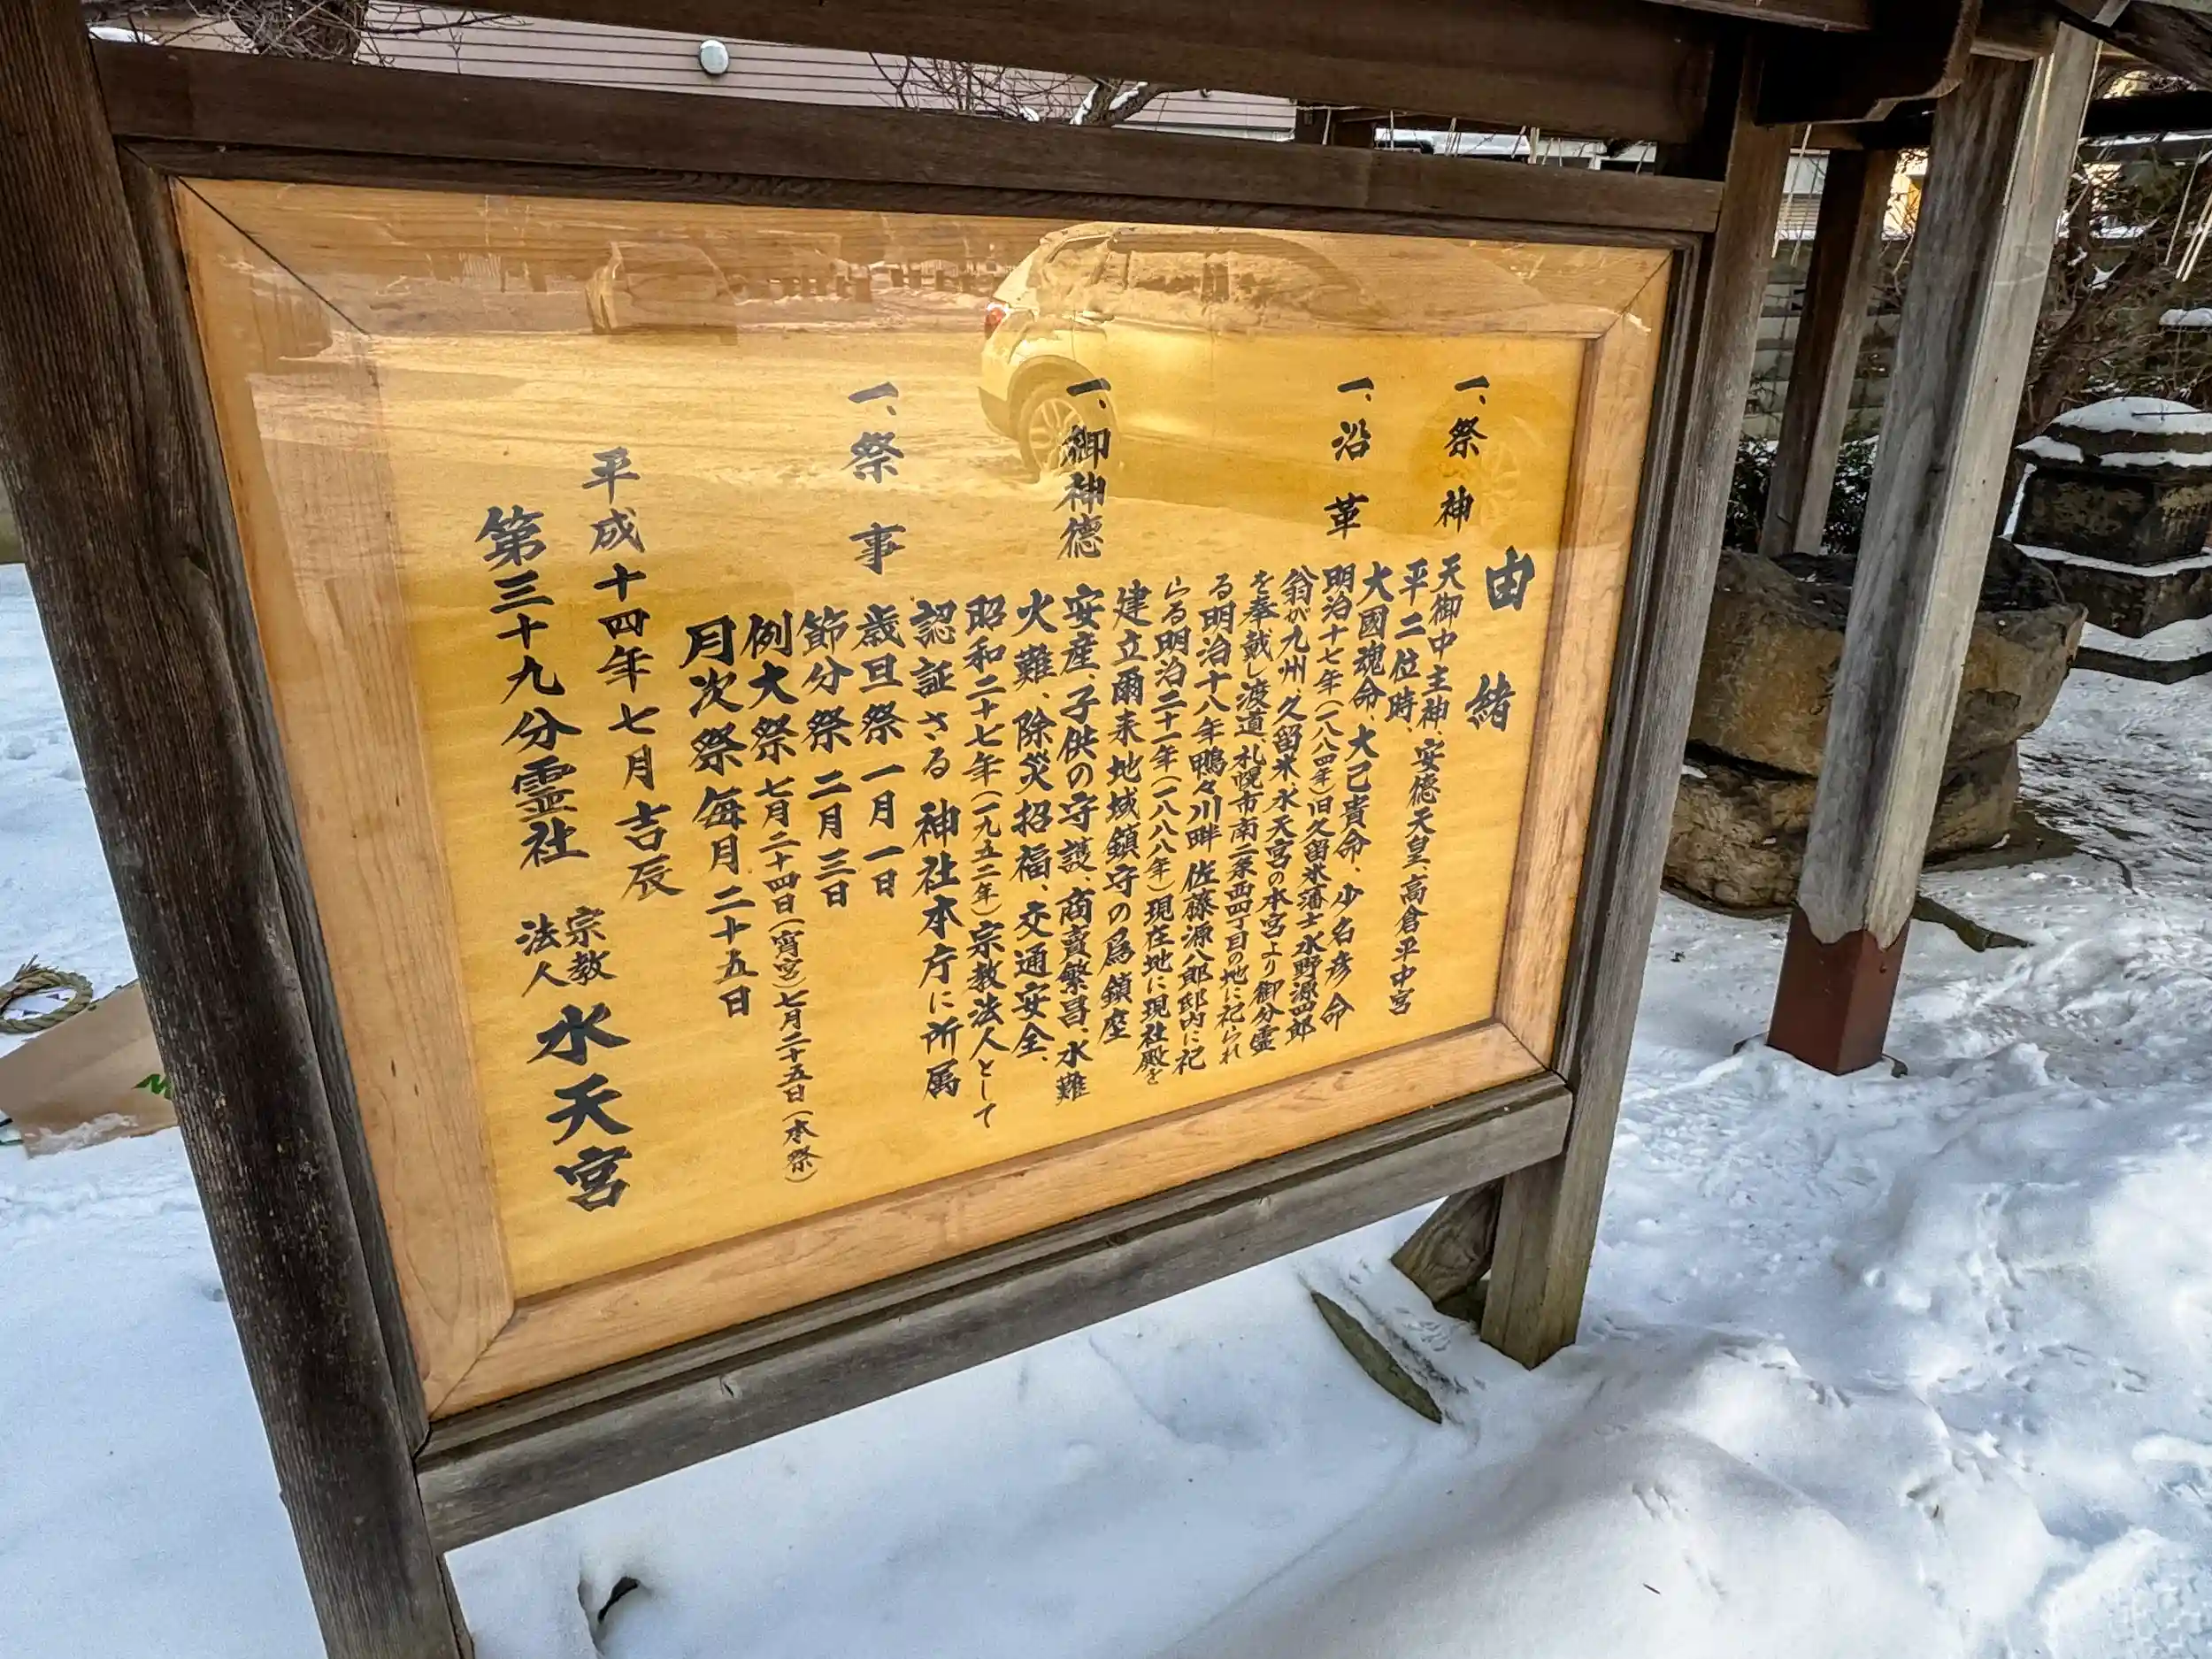 由緒
一、祭神
天御中主神、安德天皇、高倉平中宮
平二位時、
大國魂命、大己貴命、少名彦命
一、沿革
明治十七年(一八八四年)旧久留米藩士水野源四郎
翁が九州、久留米、水天宮の本宮より御分霊
を奉戴し渡道、札幌市南二条西四丁目の地に祀られ
る明治十八年鴨々川畔佐藤源八郎邸内に祀
らる明治二十一年(一八八八年)現在地に現社殿を
建立爾来地域鎮守の為鎮座
一、御神徳
安産、子供の守護、商賣繁昌、水難
火難、除災招福、交通安全、
昭和二十七年(一九五二年)宗教法人として
認証さる 神社本庁に所属
一、祭事
歳旦祭 一月一日
節分祭 二月三日
例大祭 七月二十四日(宵宮)七月二十五日(本祭)
月次祭 毎月二十五日
平成十四年七月吉辰
第三十九分霊社 宗教法人 水天宮